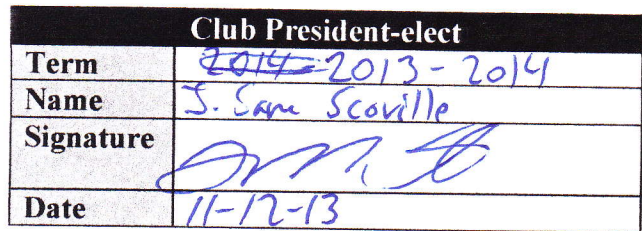 Club President-elect
Term 2014 2013-2014
Name J. Sam Scoville
Signature
Date 11-12-13